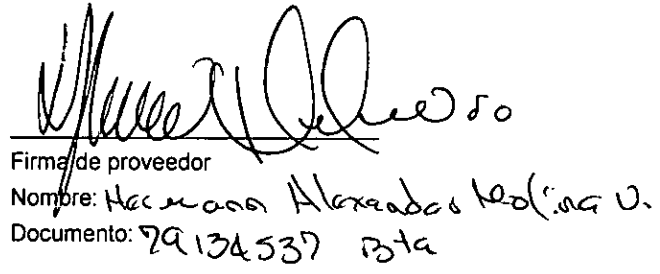 Firma de proveedor
Nombre: Hermann Alexander Molina V.
Documento: 79134537 Bta